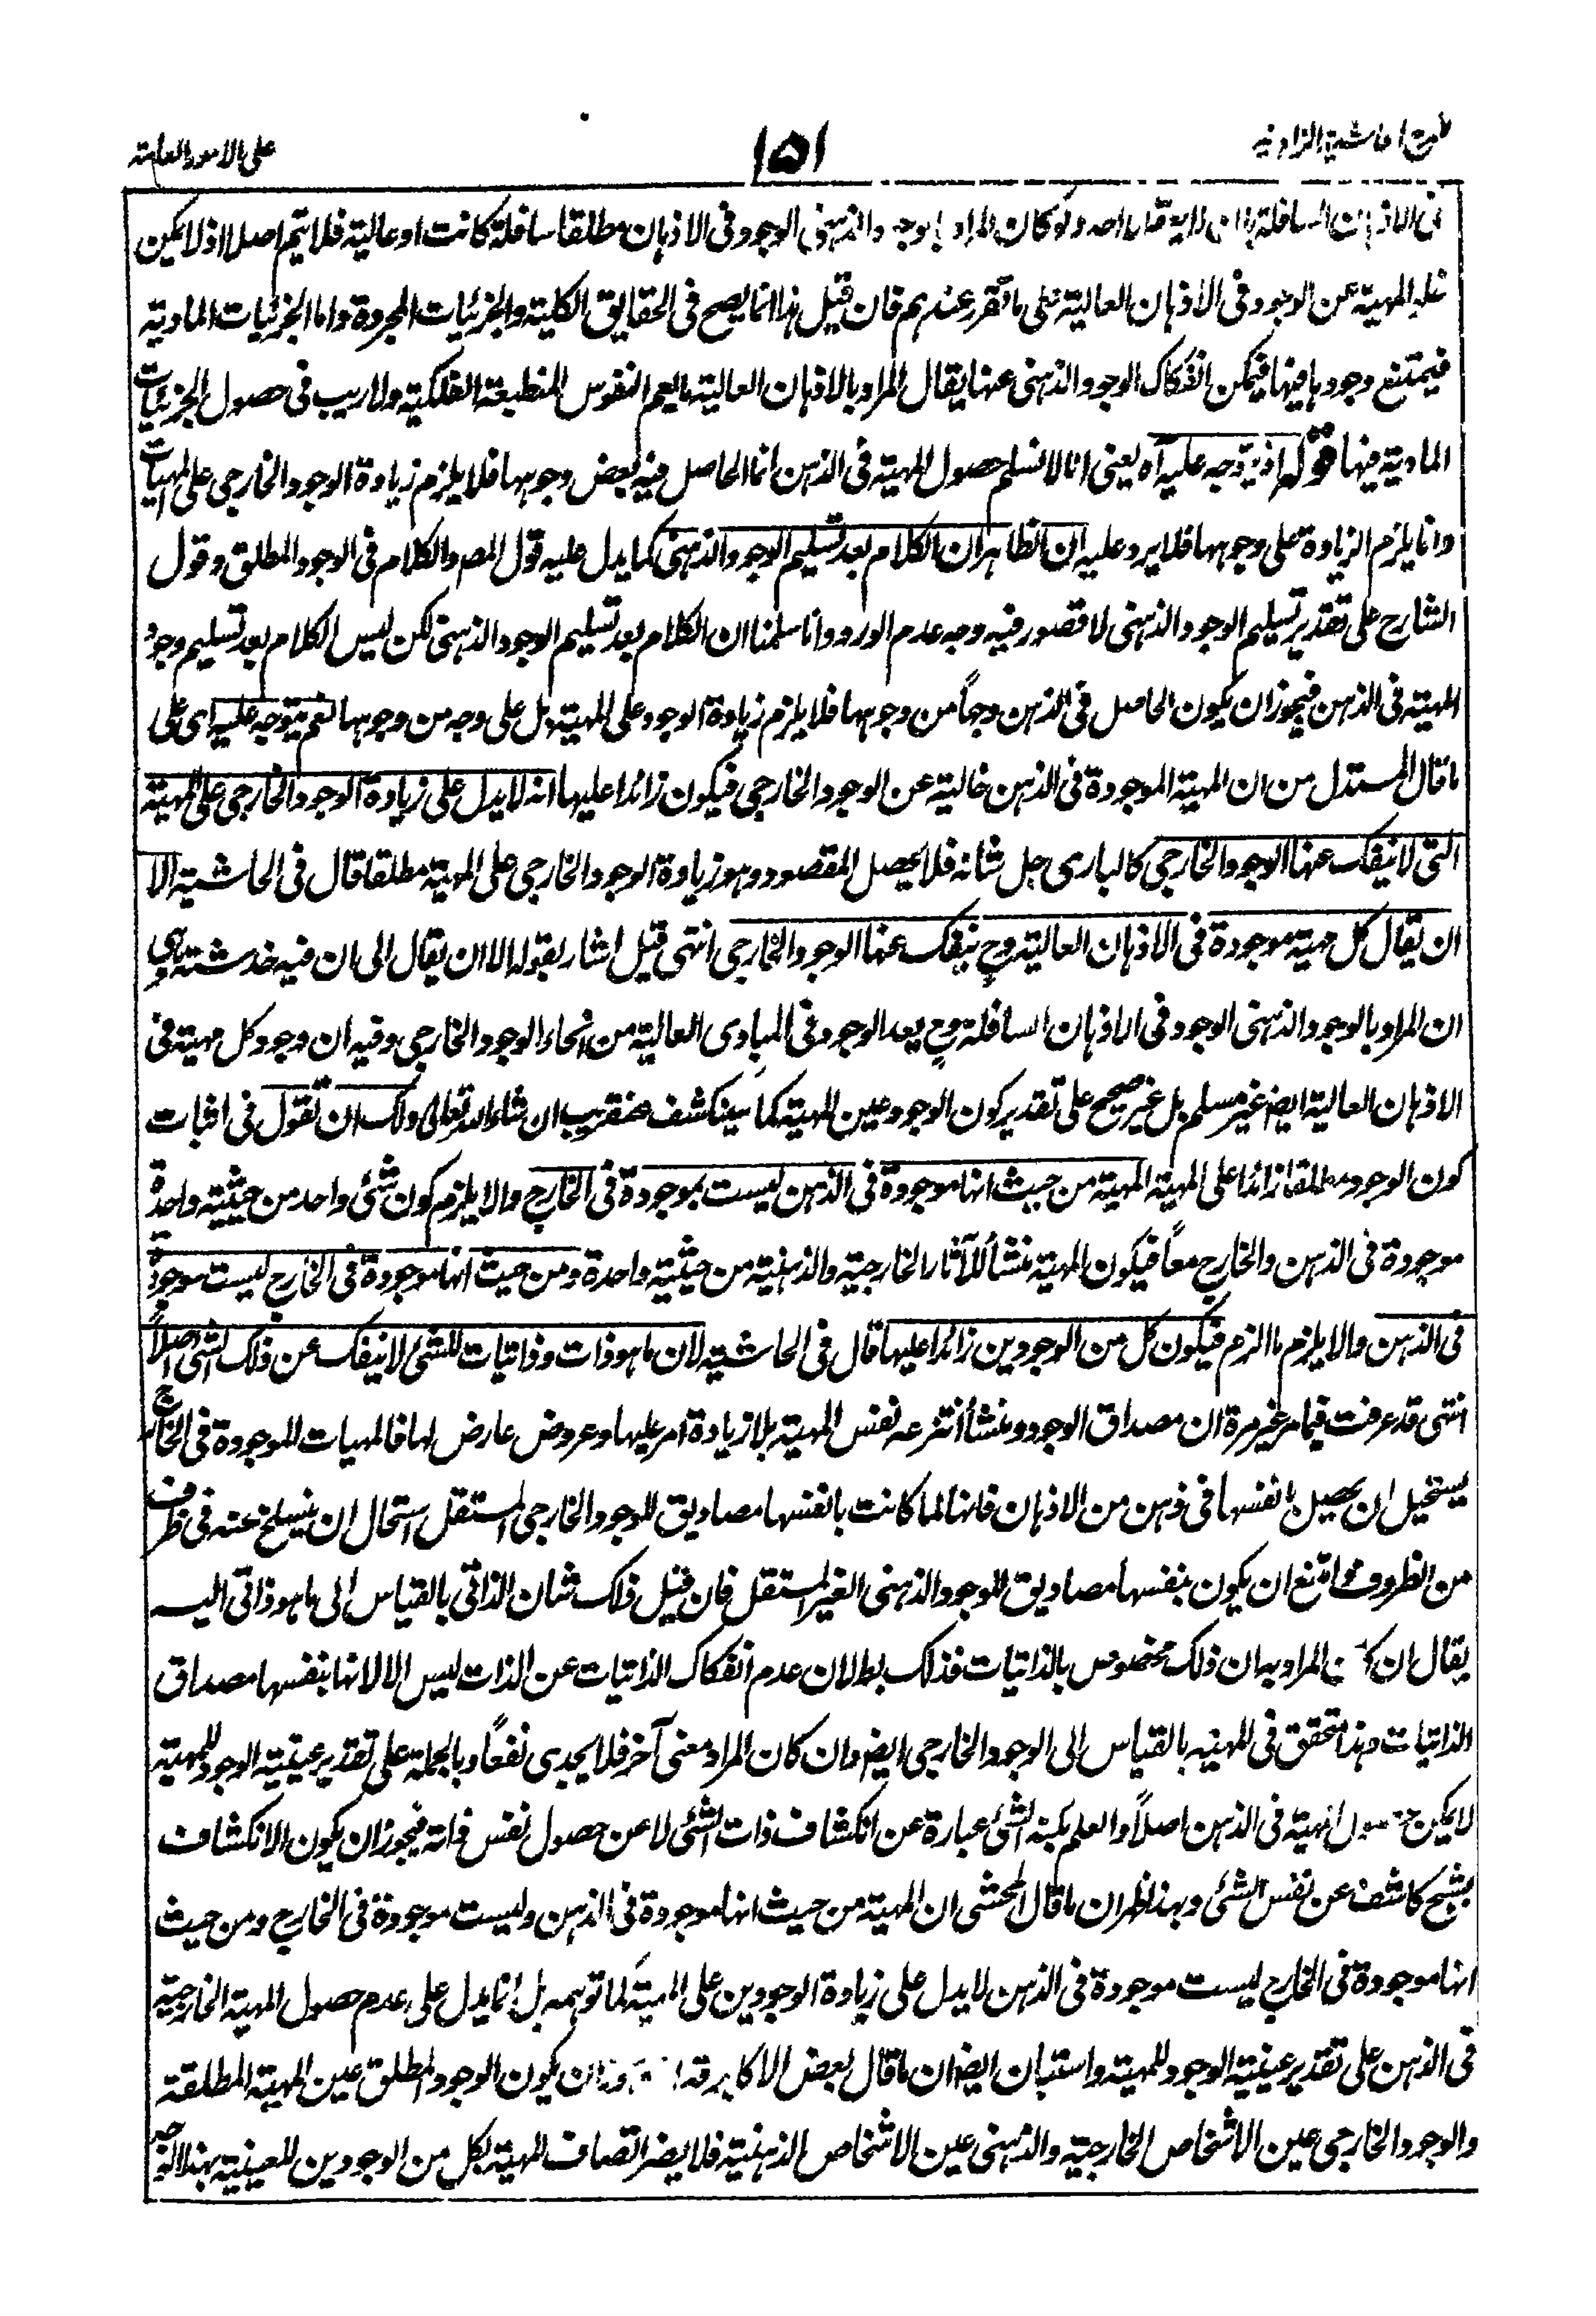 شرح الحاشية الزاهدية
١٥١
على الامور العامة
فى الاذهان السافلة ولو كان المراد بالوجود الذهنى الوجود فى الاذهان مطلقا سافلة كانت او عالية فلا يتم اصلا اذ لا يمكن
المهية عن الوجود فى الاذهان العالية على ما تقرر عندهم فان قيل هذا انما يصح فى الحقايق الكلية والجزئيات المجردة واما الجزئيات المادية
فيمتنع وجودها فيها فيمكن انفكاك الوجود الذهنى عنها يقال المراد بالاذهان العالية ما يعم النفوس المنطبعة الفلكية ولا ريب فى حصول الجزئيات
المادية فيها قوله اذ يتوجه عليه آه يعنى انا لا نسلم حصول المهية فى الذهن انما الحاصل فيه بعض وجوهها فلا يلزم زيادة الوجود الخارجى على المهيات
وانما يلزم الزيادة على وجوهها فلا يرد عليه ان الظاهر ان الكلام بعد تسليم الوجود الذهنى كما يدل عليه قول المصـ والكلام فى الوجود المطلق وقول
الشارح على تقدير تسليم الوجود الذهنى لا قصور فيه وجه عدم الورود وانا سلمنا ان الكلام بعد تسليم الوجود الذهنى لكن ليس الكلام بعد تسليم وجود
المهية فى الذهن فيجوز ان يكون الحاصل فى الذهن وجهاً من وجوهها فلا يلزم زيادة الوجود على المهية بل على وجه من وجوهها نعم يتوجه عليه اى على
ما قال المستدل من ان المهية الموجودة فى الذهن خالية عن الوجود الخارجى فيكون زائدا عليها انه لا يدل على زيادة الوجود الخارجى على المهية
التى لا ينفك عنها الوجود الخارجى كالبارى جل شانه فلا يحصل المقصود وهو زيادة الوجود الخارجى على المهية مطلقا قال فى الحاشية الا
ان يقال كل مهية موجودة فى الاذهان العالية وح ينفك عنها الوجود الخارجى انتهى قيل اشار بقوله الا ان يقال الى ان فيه خدشة وهى
ان المراد بالوجود الذهنى الوجود فى الاذهان السافلة وح يعد الوجود فى المبادى العالية من انحاء الوجود الخارجى وفيه ان وجود كل مهية فى
الاذهان العالية ايضا غير مسلم بل غير صحيح على تقدير كون الوجود عين المهية كما سينكشف عنقريب ان شاء الله تعالى ولك ان تقول فى اثبات
كون الوجود مطلقا زائدا على المهية المهية من حيث انها موجودة فى الذهن ليست بموجودة فى الخارج والا يلزم كون شئ واحد من حيثية واحدة
موجودة فى الذهن والخارج معاً فيكون المهية منشأ للآثار الخارجية والذهنية من حيثية واحدة ومن حيث انها موجودة فى الخارج ليست موجودة
فى الذهن والا يلزم ما الزم فيكون كل من الوجودين زائدا عليها قال فى الحاشية لان ما هو ذات وذاتيات للشئ لا ينفك عن ذلك الشئ اصلاً
انتهى قد عرفت فيما مر غير مرة ان مصداق الوجود ومنشأ انتزعه نفس المهية بلا زيادة امر عليها وعروض عارض لها فالمهيات الموجودة فى الخارج
يستحيل ان يحصل بانفسها فى ذهن من الاذهان فانها لما كانت بانفسها مصاديق للوجود الخارجى المستقل استحال ان ينسلخ عنه فى ظرف
من الظروف وامتنع ان يكون بنفسها مصاديق للوجود الذهنى الغير المستقل فان قيل ذلك شان الذاتى بالقياس الى ما هو ذاتى اليه
يقال ان كان المراد به ان ذلك مخصوص بالذاتيات فذلك بط لان عدم انفكاك الذاتيات عن الذات ليس الا لانها بنفسها مصداق
الذاتيات وهذا متحقق فى المهية بالقياس الى الوجود الخارجى ايضا وان كان المراد معنى آخر فلا يجدى نفعاً وبالجملة على تقدير عينية الوجود للمهية
لا يمكن حصول المهية فى الذهن اصلاً والعلم بكنه الشئ عبارة عن انكشاف ذات الشئ لا عن حصول نفس ذاته فيجوز ان يكون الانكشاف
بشبح كاشف عن نفس الشئ وبهذا ظهر ان ما قال المحشى ان المهية من حيث انها موجودة فى الذهن وليست موجودة فى الخارج ومن حيث
انها موجودة فى الخارج ليست موجودة فى الذهن لا يدل على زيادة الوجودين على المهية كما توهمه بل انما يدل على عدم حصول المهية الخارجية
فى الذهن على تقدير عينية الوجود للمهية واستبان ايضا ان ما قال بعض الاكابر قده ان يكون الوجود المطلق عين المهية المطلقة
والوجود الخارجى عين الاشخاص الخارجية والذهنى عين الاشخاص الذهنية فلا يضر اتصاف المهية بكل من الوجودين للعينية بهذا